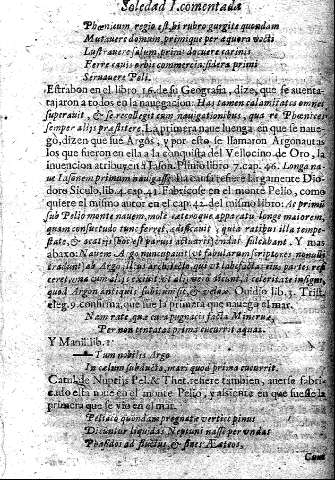 Soledad I. comentada
Phœnicum, regio est, hi rubro gurgite quondam
Mutauere domum, primique per æquora vecti
Lustrauere salum, primi docuere carinis
Ferre cauis orbis commercia, sidera primi
Seruauere Poli.
Estrabon en el libro 16. de su Geografia, dize, que se auenta-
tajaron a todos en la nauegacion: Has tamen calamitates omnes
superauit, & se recollegit tum nauigationibus, qua re Phœnices
semper alijs præstitere. La primera naue luenga en que se naue-
gò, dizen que fue Argos, y por esto se llamaron Argonautas
los que fueron en ella a la conquista del Vellocino de Oro, la
inuencion atribuyen à Iason. Plinio libro 7. cap. 46. Longa na-
ue Iasonem primum nauigasse. La causa refiere largamente Dio-
doro Siculo, lib. 4. cap. 41. Fabricose en el monte Pelio, como
quiere el mismo autor en el cap. 42. del mismo libro: Ac primũ
sub Pelio monte nauem, mole cæteroque apparatu longe maiorem,
quam consuetudo tunc ferret, ædificauit; quia ratibus illa tempe-
state, & acatijs (hoc est paruis actuarijs) undas sulcabant. Y mas
abaxo: Nauem Argo nuncuparunt, ut fabularum scriptores nonnulli
tradunt, ab Argo illius architecto, qui
quod Argon antiqui Ouidio lib. 3. Trist.
eleg. 9. confirma, que fue la primera que nauegò el mar.
Nam rate, quæ cura pugnacis facta Mineruæ,
Per non tentatas prima cucurrit aquas.
Y Manil. lib. 1.
Tum nobilis Argo
In cælum subducta, mari quod prima cucurrit.
Catul. de Nuptijs Pel. & Thet. refiere tambien, auerse fabri-
cado esta naue en el monte Pelio, y assiente en que fuesse la
primera que se vio en el mar.
Peliaco quondam prognatæ vertice pinus
Dicuntur liquidas Neptuni nasse per vndas
Phasidos ad fluctus, & fines Æœteos.